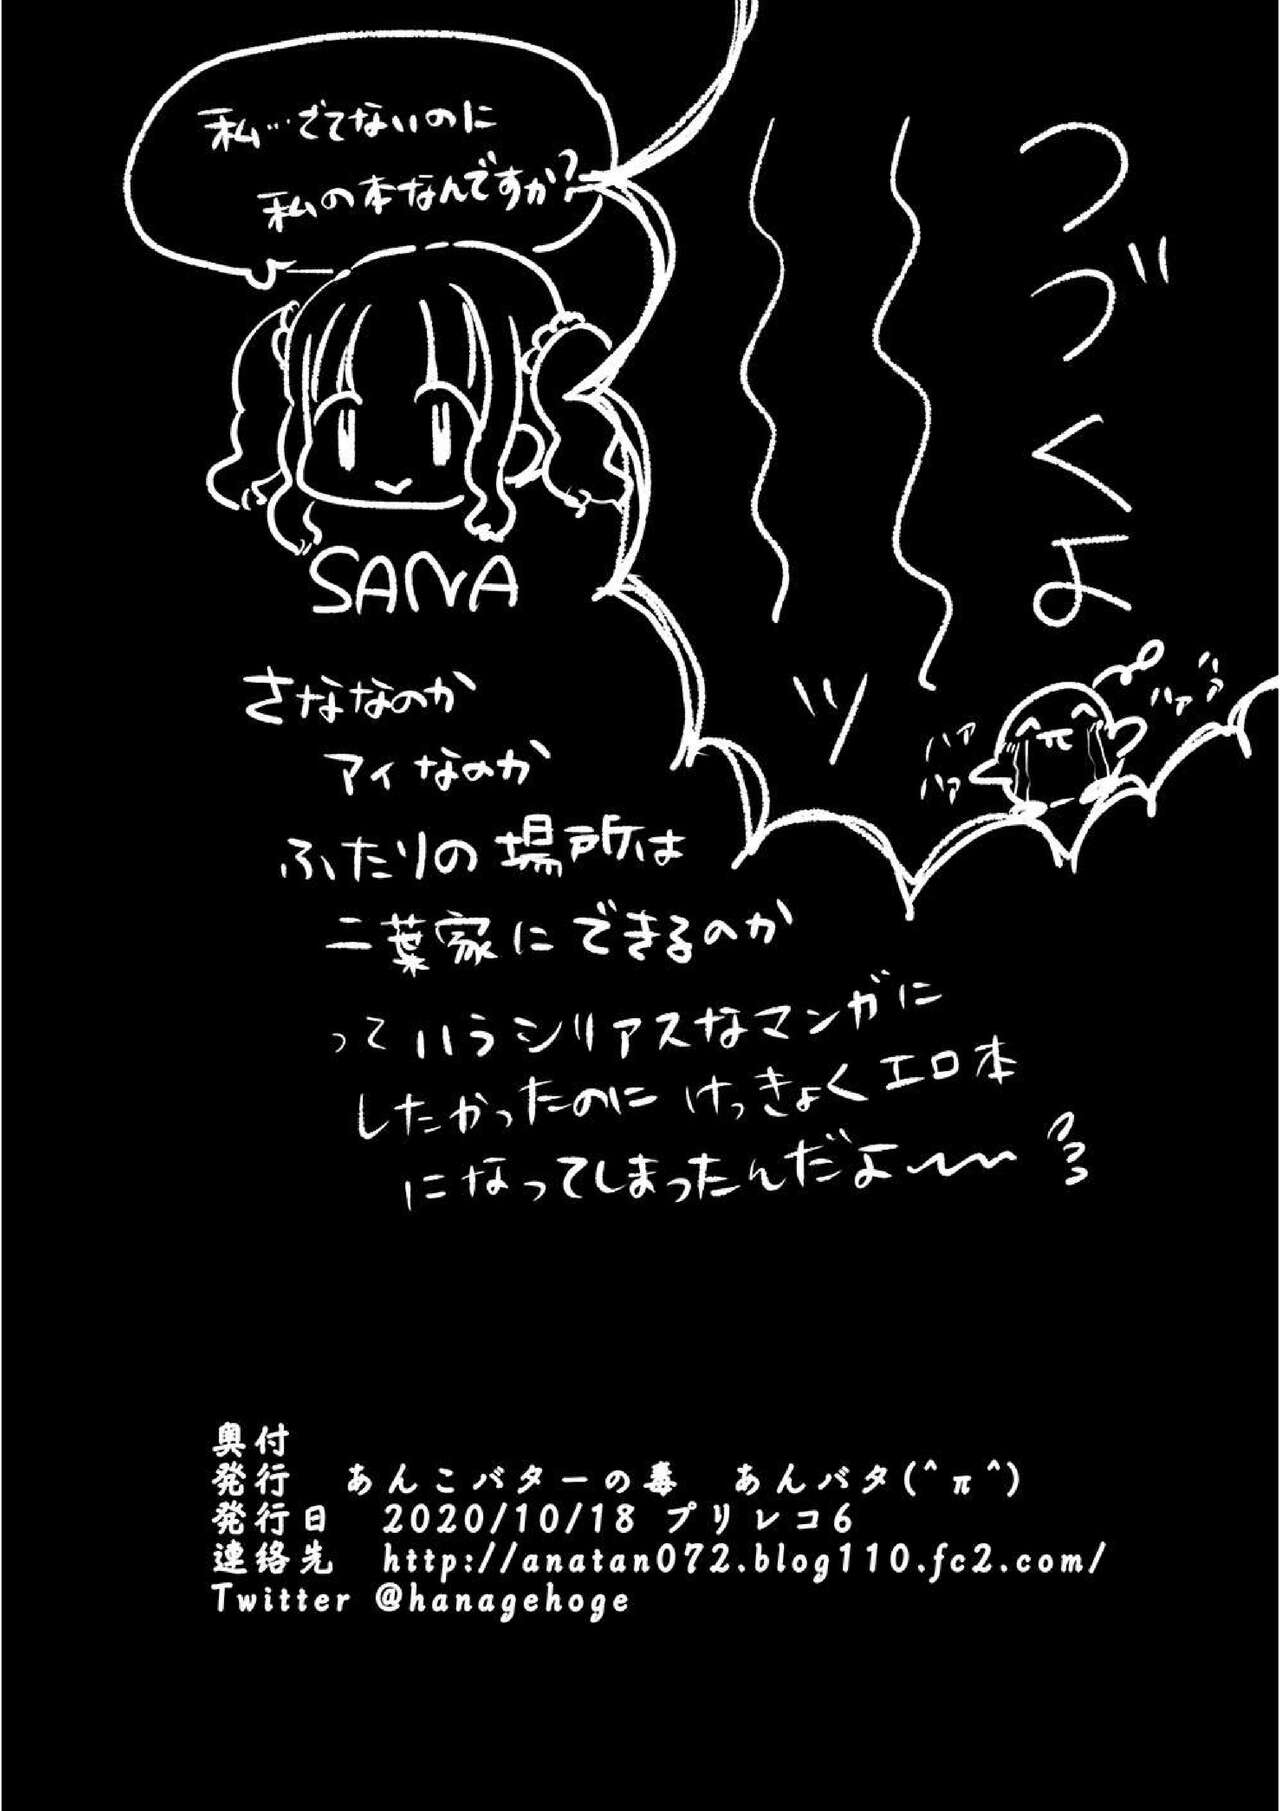 つづくよ
ッ
ハァ
ハァ
ハァ
ハァ
私…でてないのに
私の本なんですか?
SANA
さななのか
アイなのか
ふたりの場所は
二葉家にできるのか
っていうシリアスなマンガに
したかったのに けっきょくエロ本
になってしまったんだよ〜〜
奥付
発行 あんこバターの毒 あんバタ(^π^)
発行日 2020/10/18 プリレコ6
連絡先 http://anatan072.blog110.fc2.com/
Twitter @hanagehoge